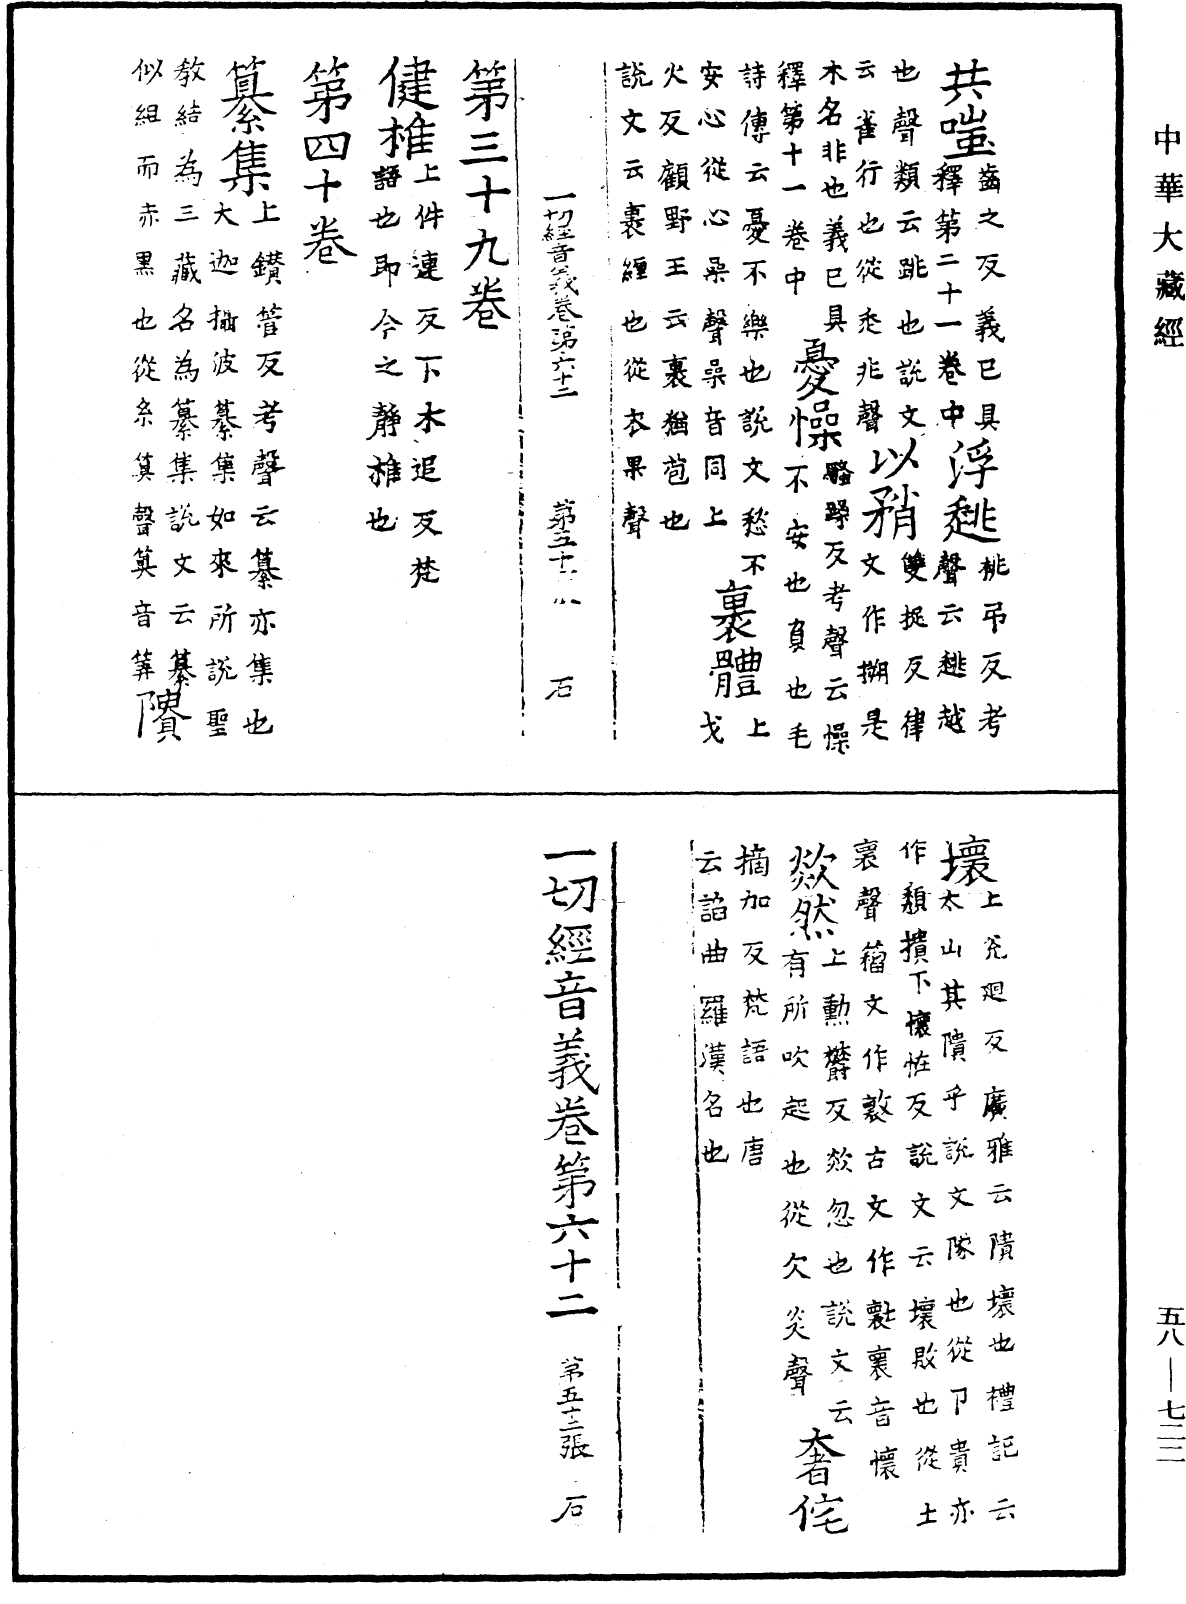 中華大藏經
共嗤齒之反義已具釋第二十一卷中浮趒桃弔反考聲云趒越
也聲類云跳也說文云雀行也從走兆聲以矟雙捉反律文作槊是
木名非也義已具釋第十一卷中憂懆騷躁反考聲云懆不安也負也毛
詩傳云憂不樂也說文愁不安心從心喿聲喿音同上裹體上戈
火反顧野王云裹猶苞也說文云裹纏也從衣果聲
一切經音義卷第六十二 第五十二張 石
第三十九卷
健椎上件連反下木追反梵語也即今之靜椎也
第四十卷
纂集上鑚管反考聲云纂亦集也大迦攝波纂集如來所說聖
教結為三藏名為纂集說文云纂似組而赤黑也從糸算聲算音筭隤
壞上兊廻反廣雅云隤壞也禮記云太山其隤乎說文隊也從𨸏貴亦
作頹㩯下懷恠反說文云壞敗也從土褱聲籀文作𣀩古文作𣀩褱音懷
欻然上勳欝反欻忽也說文云有所吹起也從欠炎聲奢侘
摘加反梵語也唐云諂曲羅漢名也
一切經音義卷第六十二 第五十三張 石
五八—七二二